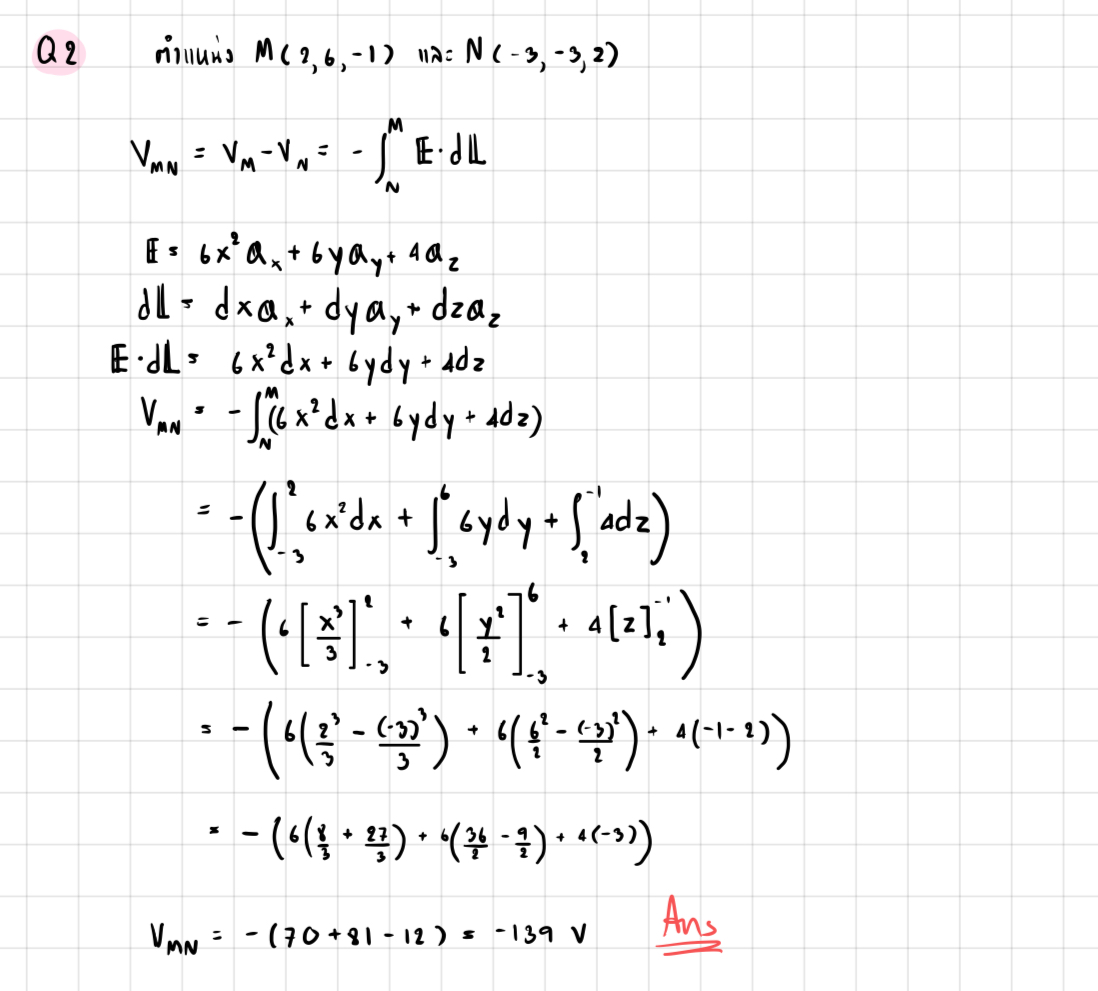 Q2 ตำแหน่ง M(2,6,-1) และ N(-3,-3,2)
V_MN = V_M - V_N = -∫_N^M E·dL
E = 6x²a_x + 6ya_y + 4a_z
dL = dxa_x + dya_y + dza_z
E·dL = 6x²dx + 6ydy + 4dz
V_MN = -∫_N^M (6x²dx + 6ydy + 4dz)
= -(∫_{-3}^{2} 6x²dx + ∫_{-3}^{6} 6ydy + ∫_{2}^{-1} 4dz)
= -(6[x³/3]_{-3}^{2} + 6[y²/2]_{-3}^{6} + 4[z]_{2}^{-1})
= -(6(2³/3 - (-3)³/3) + 6(6²/2 - (-3)²/2) + 4(-1-2))
= -(6(8/3 + 27/3) + 6(36/2 - 9/2) + 4(-3))
V_MN = -(70+81-12) = -139 V Ans